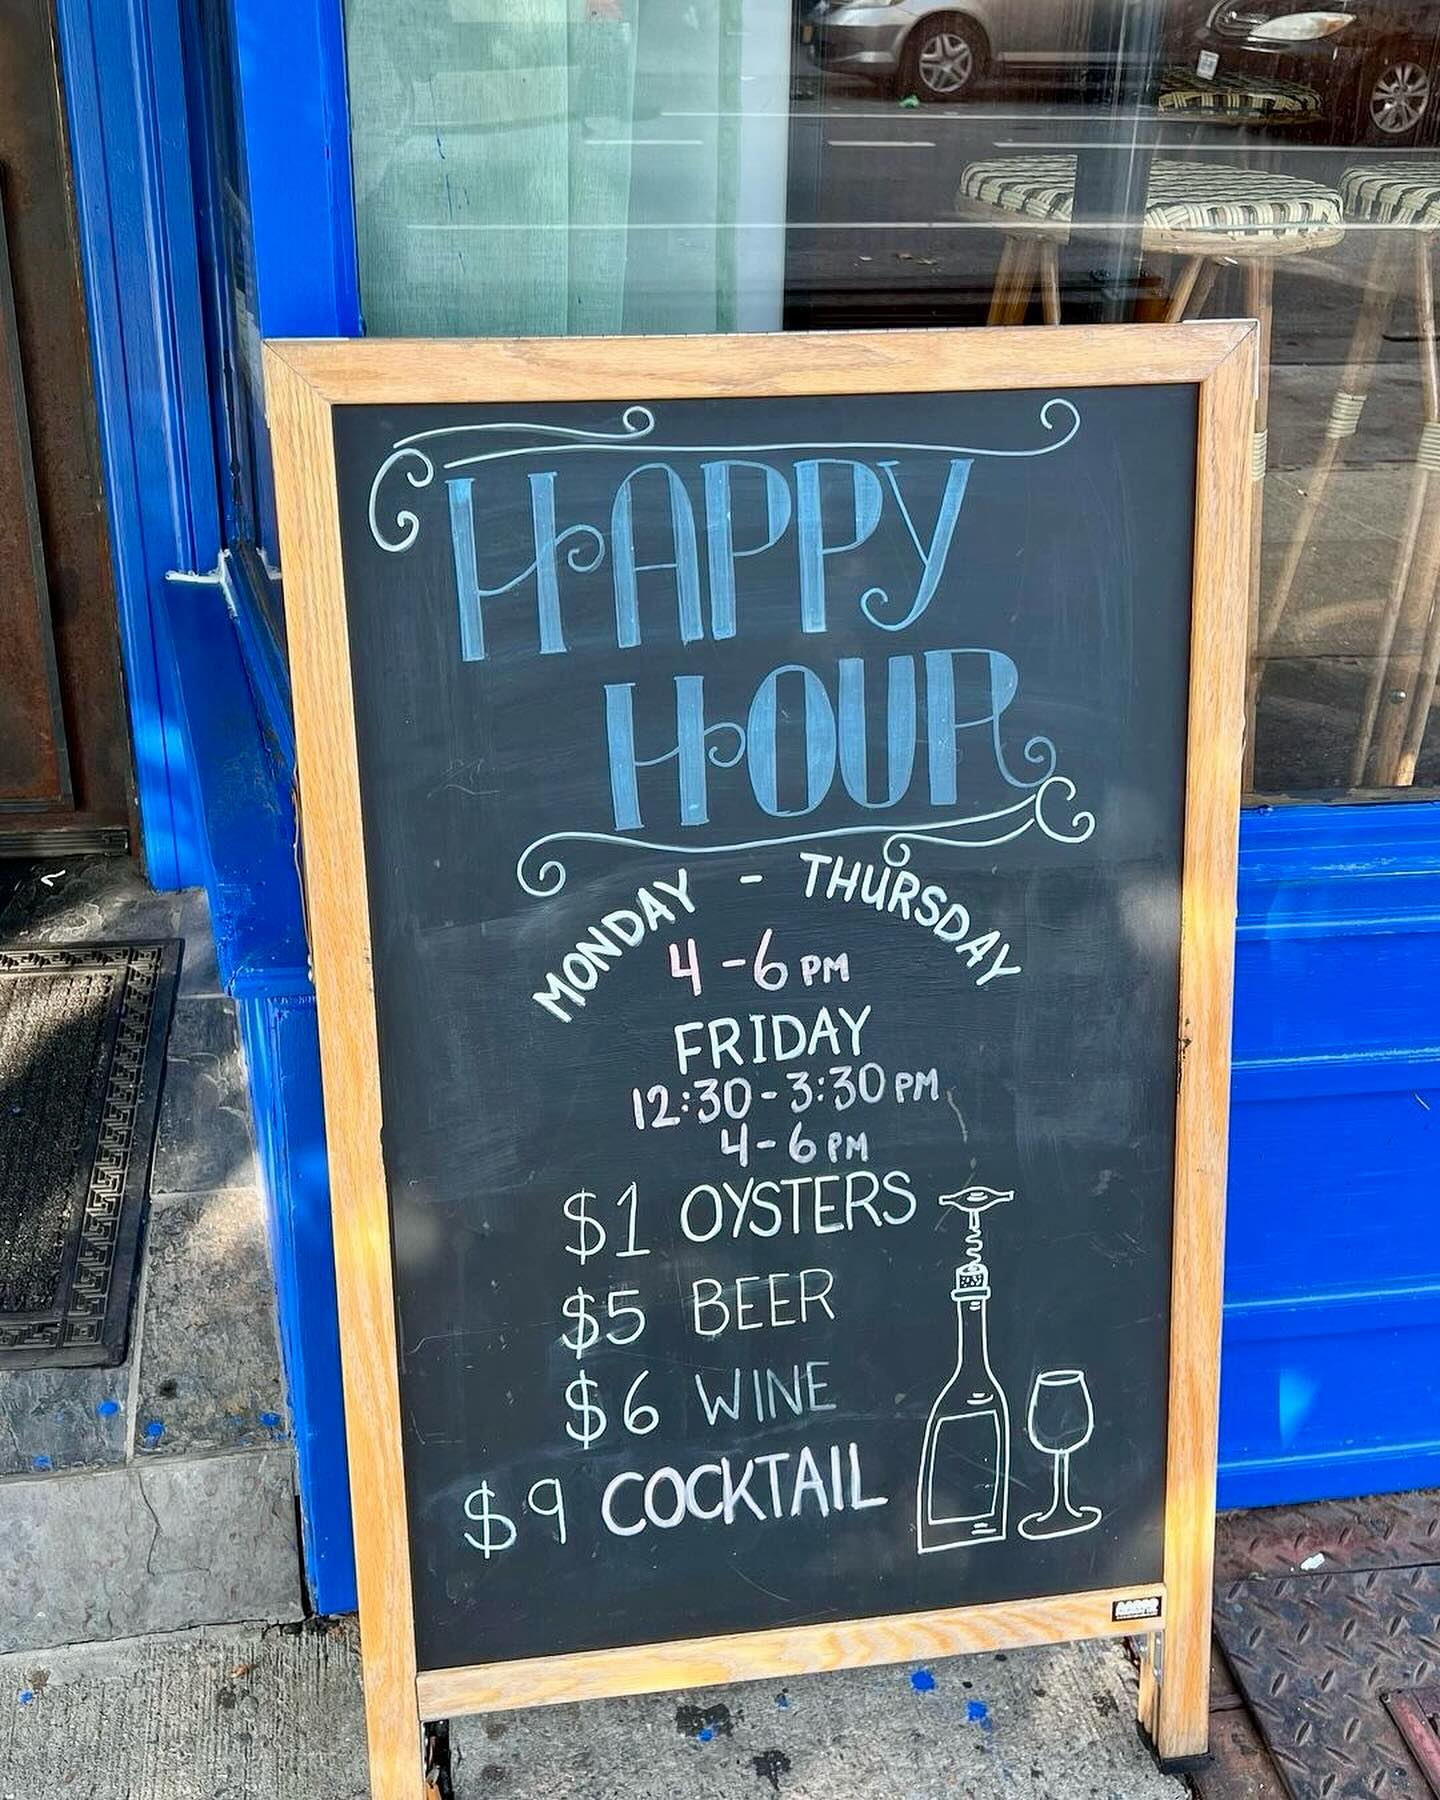 HAPPY
HOUR
MONDAY - THURSDAY
4-6PM
FRIDAY
12:30-3:30PM
4-6PM
$1 OYSTERS
$5 BEER
$6 WINE
$9 COCKTAIL